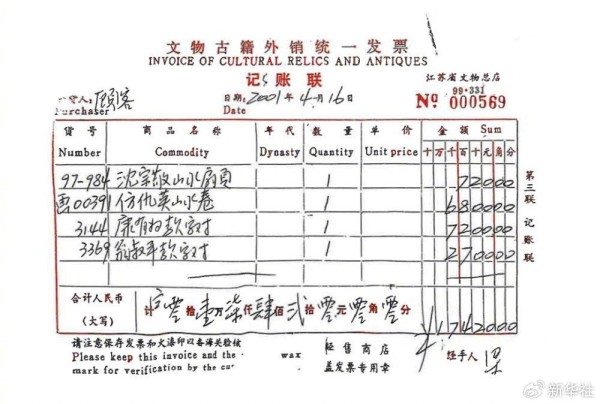 文物古籍外销统一发票
INVOICE OF CULTURAL RELICS AND ANTIQUES
记账联
江苏省文物总店
99·331
货人: 顾客
Purchaser
日期: 2001年4月16日
Date
Nº 000569
货号 商品名称 年代 数量 单价 金额 Sum
Number Commodity Dynasty Quantity Unit price 十 万 千 百 十 元 角 分
97-984 沈宗敬山水扇页 1 72000
画00391 仿仇英山水卷 1 680000
3144 康有为款字对 1 720000
3369 翁叔平款字对 1 270000
第三联 记账联
合计人民币
(大写)
计 零 拾 壹 万 柒 仟 肆 佰 贰 拾 零 元 零 角 零 分
¥1742000
请注意保存发票和火漆印以备海关验核
Please keep this invoice and the wax
mark for verification by the cu
经售商店
盖发票专用章
经手人
新华社